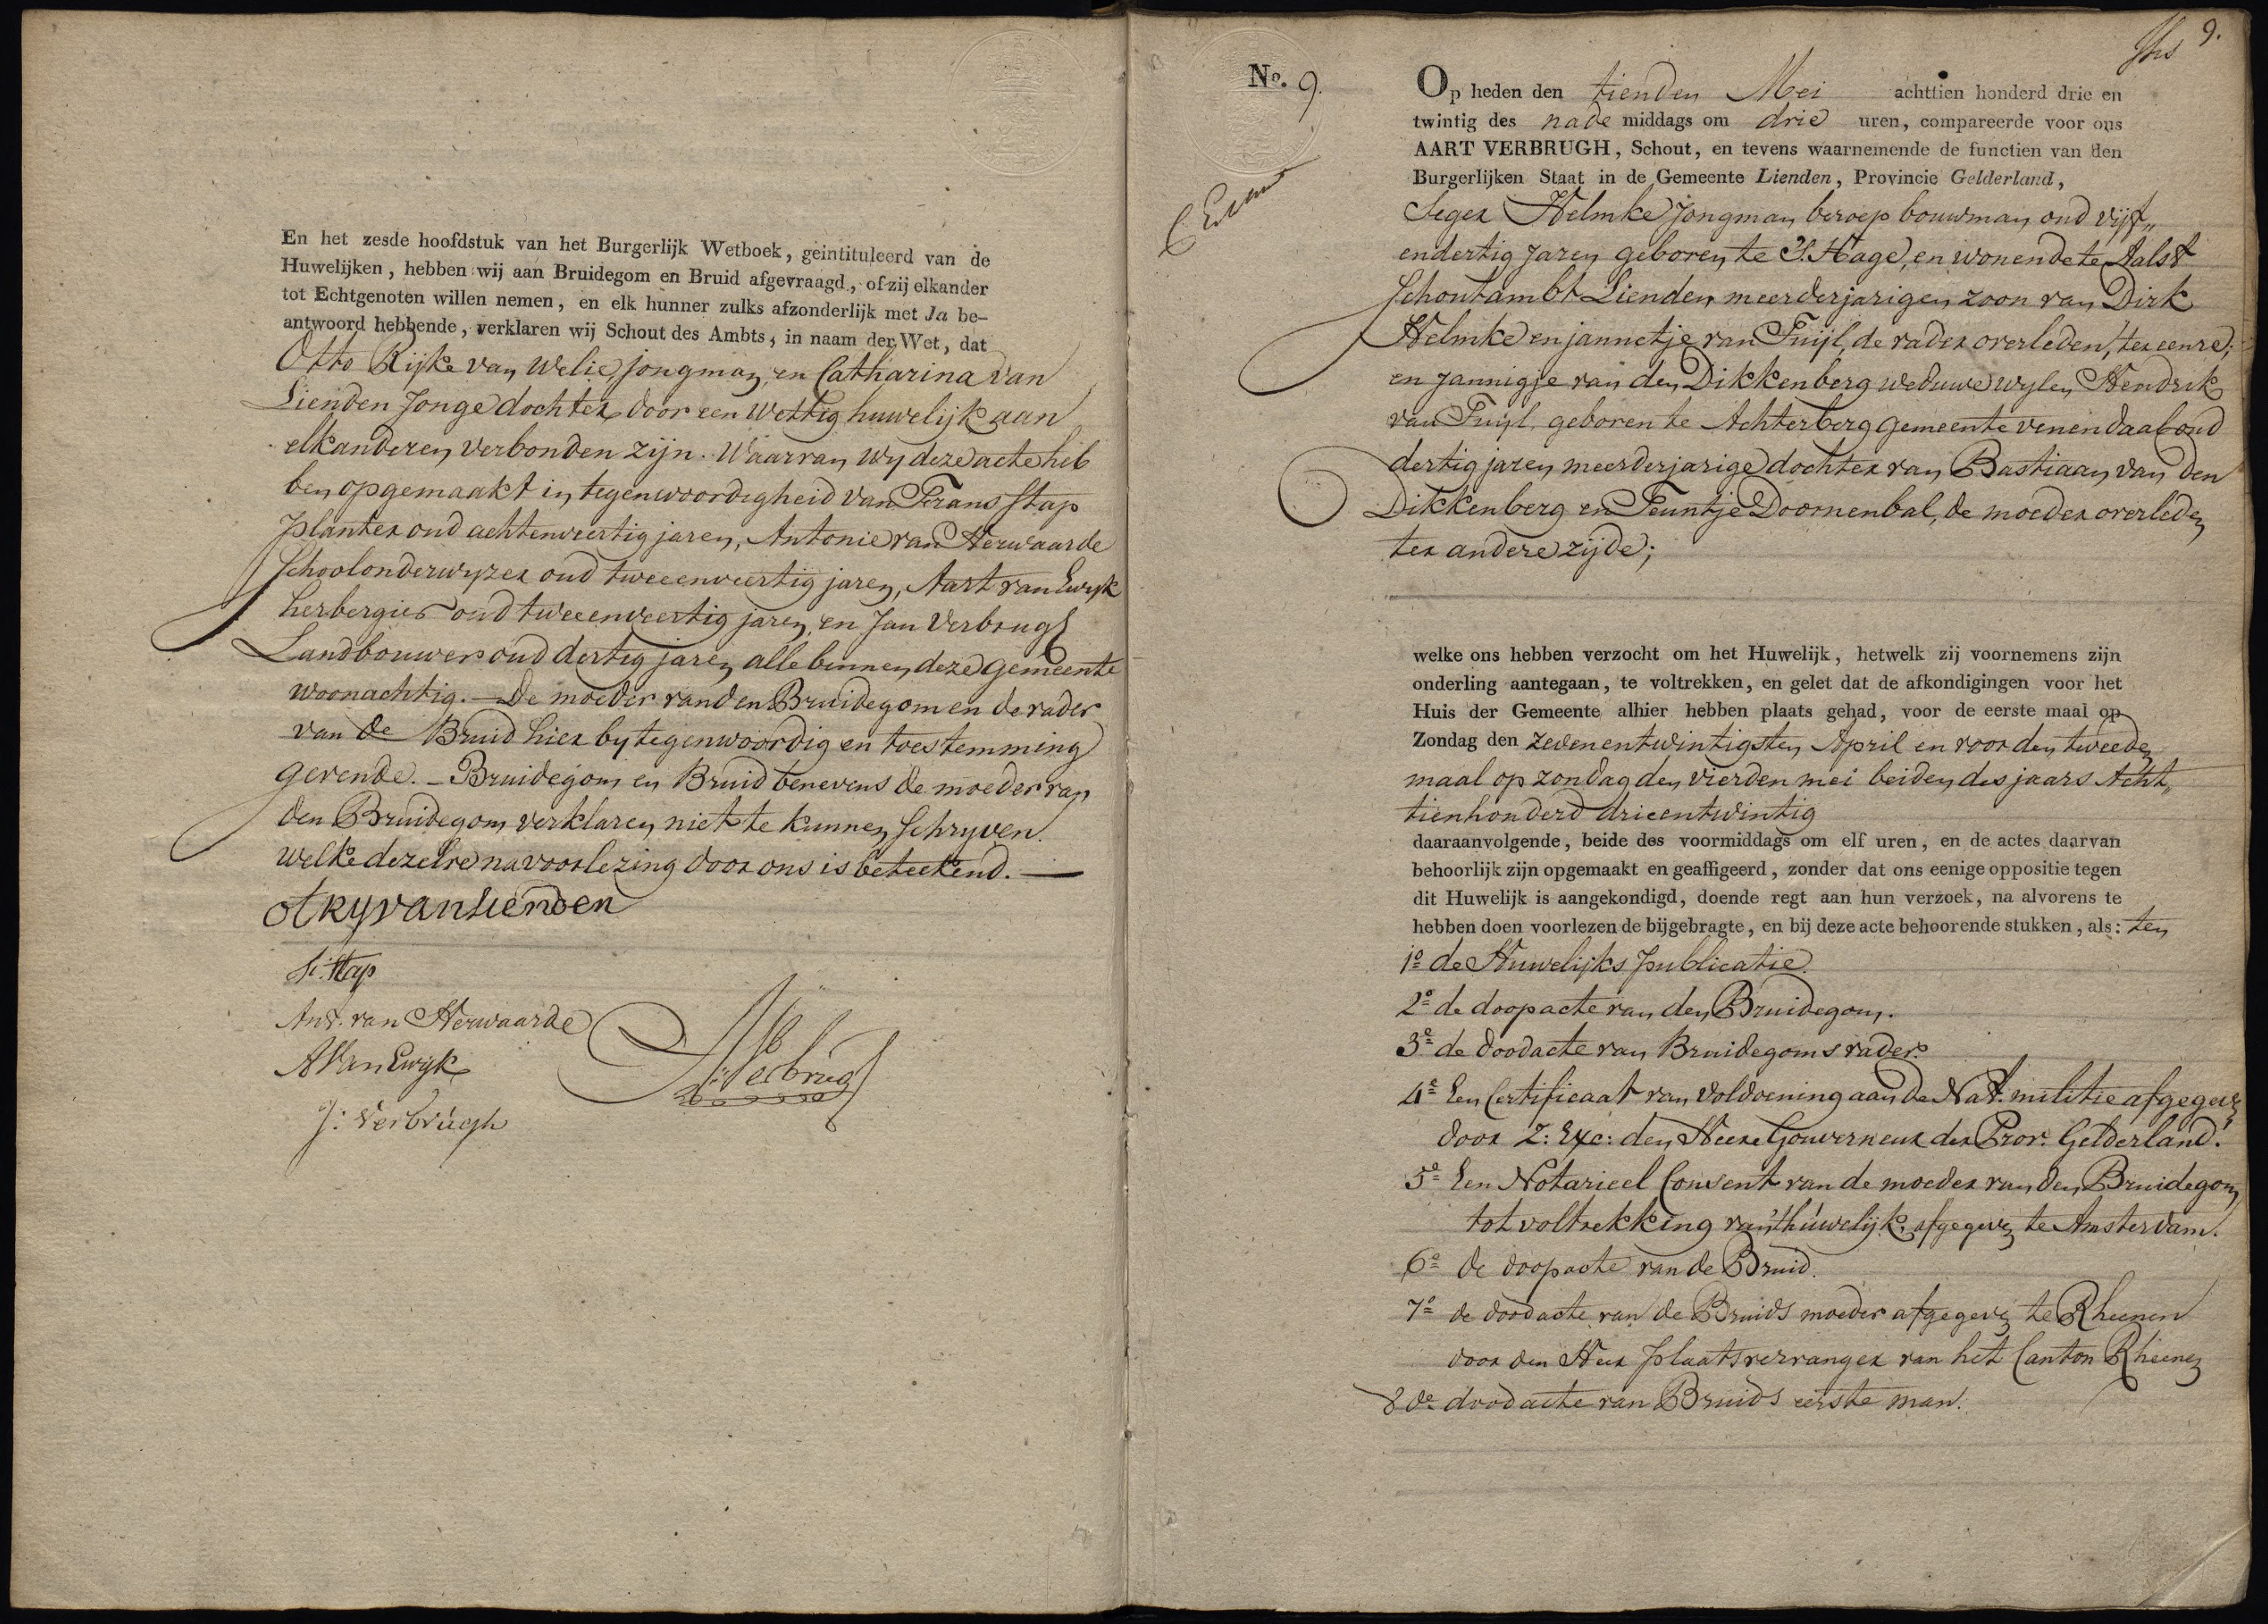 En het zesde hoofdstuk van het Burgerlijk Wetboek, geintituleerd van de
Huwelijken, hebben wij aan Bruidegom en Bruid afgevraagd, of zij elkander
tot Echtgenoten willen nemen, en elk hunner zulks afzonderlijk met Ja be-
antwoord hebbende, verklaren wij Schout des Ambts, in naam der Wet, dat
Otto Rijke van Welie, jongman, en Catharina van
Lienden Jonge dochter door een Wettig huwelijk aan
elkanderen verbonden zijn. Waarvan wy deze acte heb
ben opgemaakt in tegenwoordigheid van Frans Stap
Planter oud achtenveertig jaren, Antonie van Herwaarde
Schoolonderwyzer oud tweeenveertig jaren, Aart van Ewyk
herbergier oud tweeenveertig jaren en Jan Verbrugh
Landbouwer oud dertig jaren alle binnen deze gemeente
woonachtig. — De moeder van den Bruidegom en de vader
van de Bruid hier by tegenwoordig en toestemming
gevende. — Bruidegom en Bruid benevens de moeder van
den Bruidegom verklaren niet te kunnen Schryven.
welke dezelve na voorlezing door ons is beteekend. —
ot ry van Lienden
Stap
Ant. van Herwaarde
A Van Ewyk
Verbrugh
J: Verbrugh
9.
No. 9.
Op heden den tienden Mei achttien honderd drie en
twintig des nade middags om drie uren, compareerde voor ons
AART VERBRUGH, Schout, en tevens waarnemende de functien van den
Burgerlijken Staat in de Gemeente Lienden, Provincie Gelderland,
Seger Helmke jongman beroep bouwman oud vijf„
endertig jaren geboren te S. Hage, en wonende te Aalst
Schoutambt Lienden meerderjarigen zoon van Dirk
Helmke en jannetje van Tuijl, de vader overleden, ter eenre;
en Jannigje van den Dikkenberg weduwe wylen Hendrik
van Tuijl, geboren te Achterberg gemeente venendaal oud
dertig jaren meerderjarige dochter van Bastiaan van den
Dikkenberg en Teuntje Doornenbal, de moeder overleden
ter andere zijde;
welke ons hebben verzocht om het Huwelijk, hetwelk zij voornemens zijn
onderling aantegaan, te voltrekken, en gelet dat de afkondigingen voor het
Huis der Gemeente alhier hebben plaats gehad, voor de eerste maal op
Zondag den zevenentwintigsten April en voor den tweede
maal op zondag den vierden mei beiden des jaars Acht„
tienhonderd drieentwintig
daaraanvolgende, beide des voormiddags om elf uren, en de actes daarvan
behoorlijk zijn opgemaakt en geaffigeerd, zonder dat ons eenige oppositie tegen
dit Huwelijk is aangekondigd, doende regt aan hun verzoek, na alvorens te
hebben doen voorlezen de bijgebragte, en bij deze acte behoorende stukken, als: ten
1º de Huwelijks Publicatie.
2º de doopacte van den Bruidegom.
3º de doodacte van Bruidegoms vader.
4º Een Certificaat van Voldoening aan de Nat. militie afgegeven
door Z: Exc: den Heere Gouverneur der Prov. Gelderland.
5º Een Notarieel Consent van de moeder van den Bruidegom
tot voltrekking van 't huwelijk, afgegeven te Amsterdam.
6º de doopacte van de Bruid.
7º de doodacte van de Bruids moeder afgegeven te Rheenen
door den Heer Plaatsvervanger van het Canton Rheenen
8 de doodacte van Bruids eerste man.